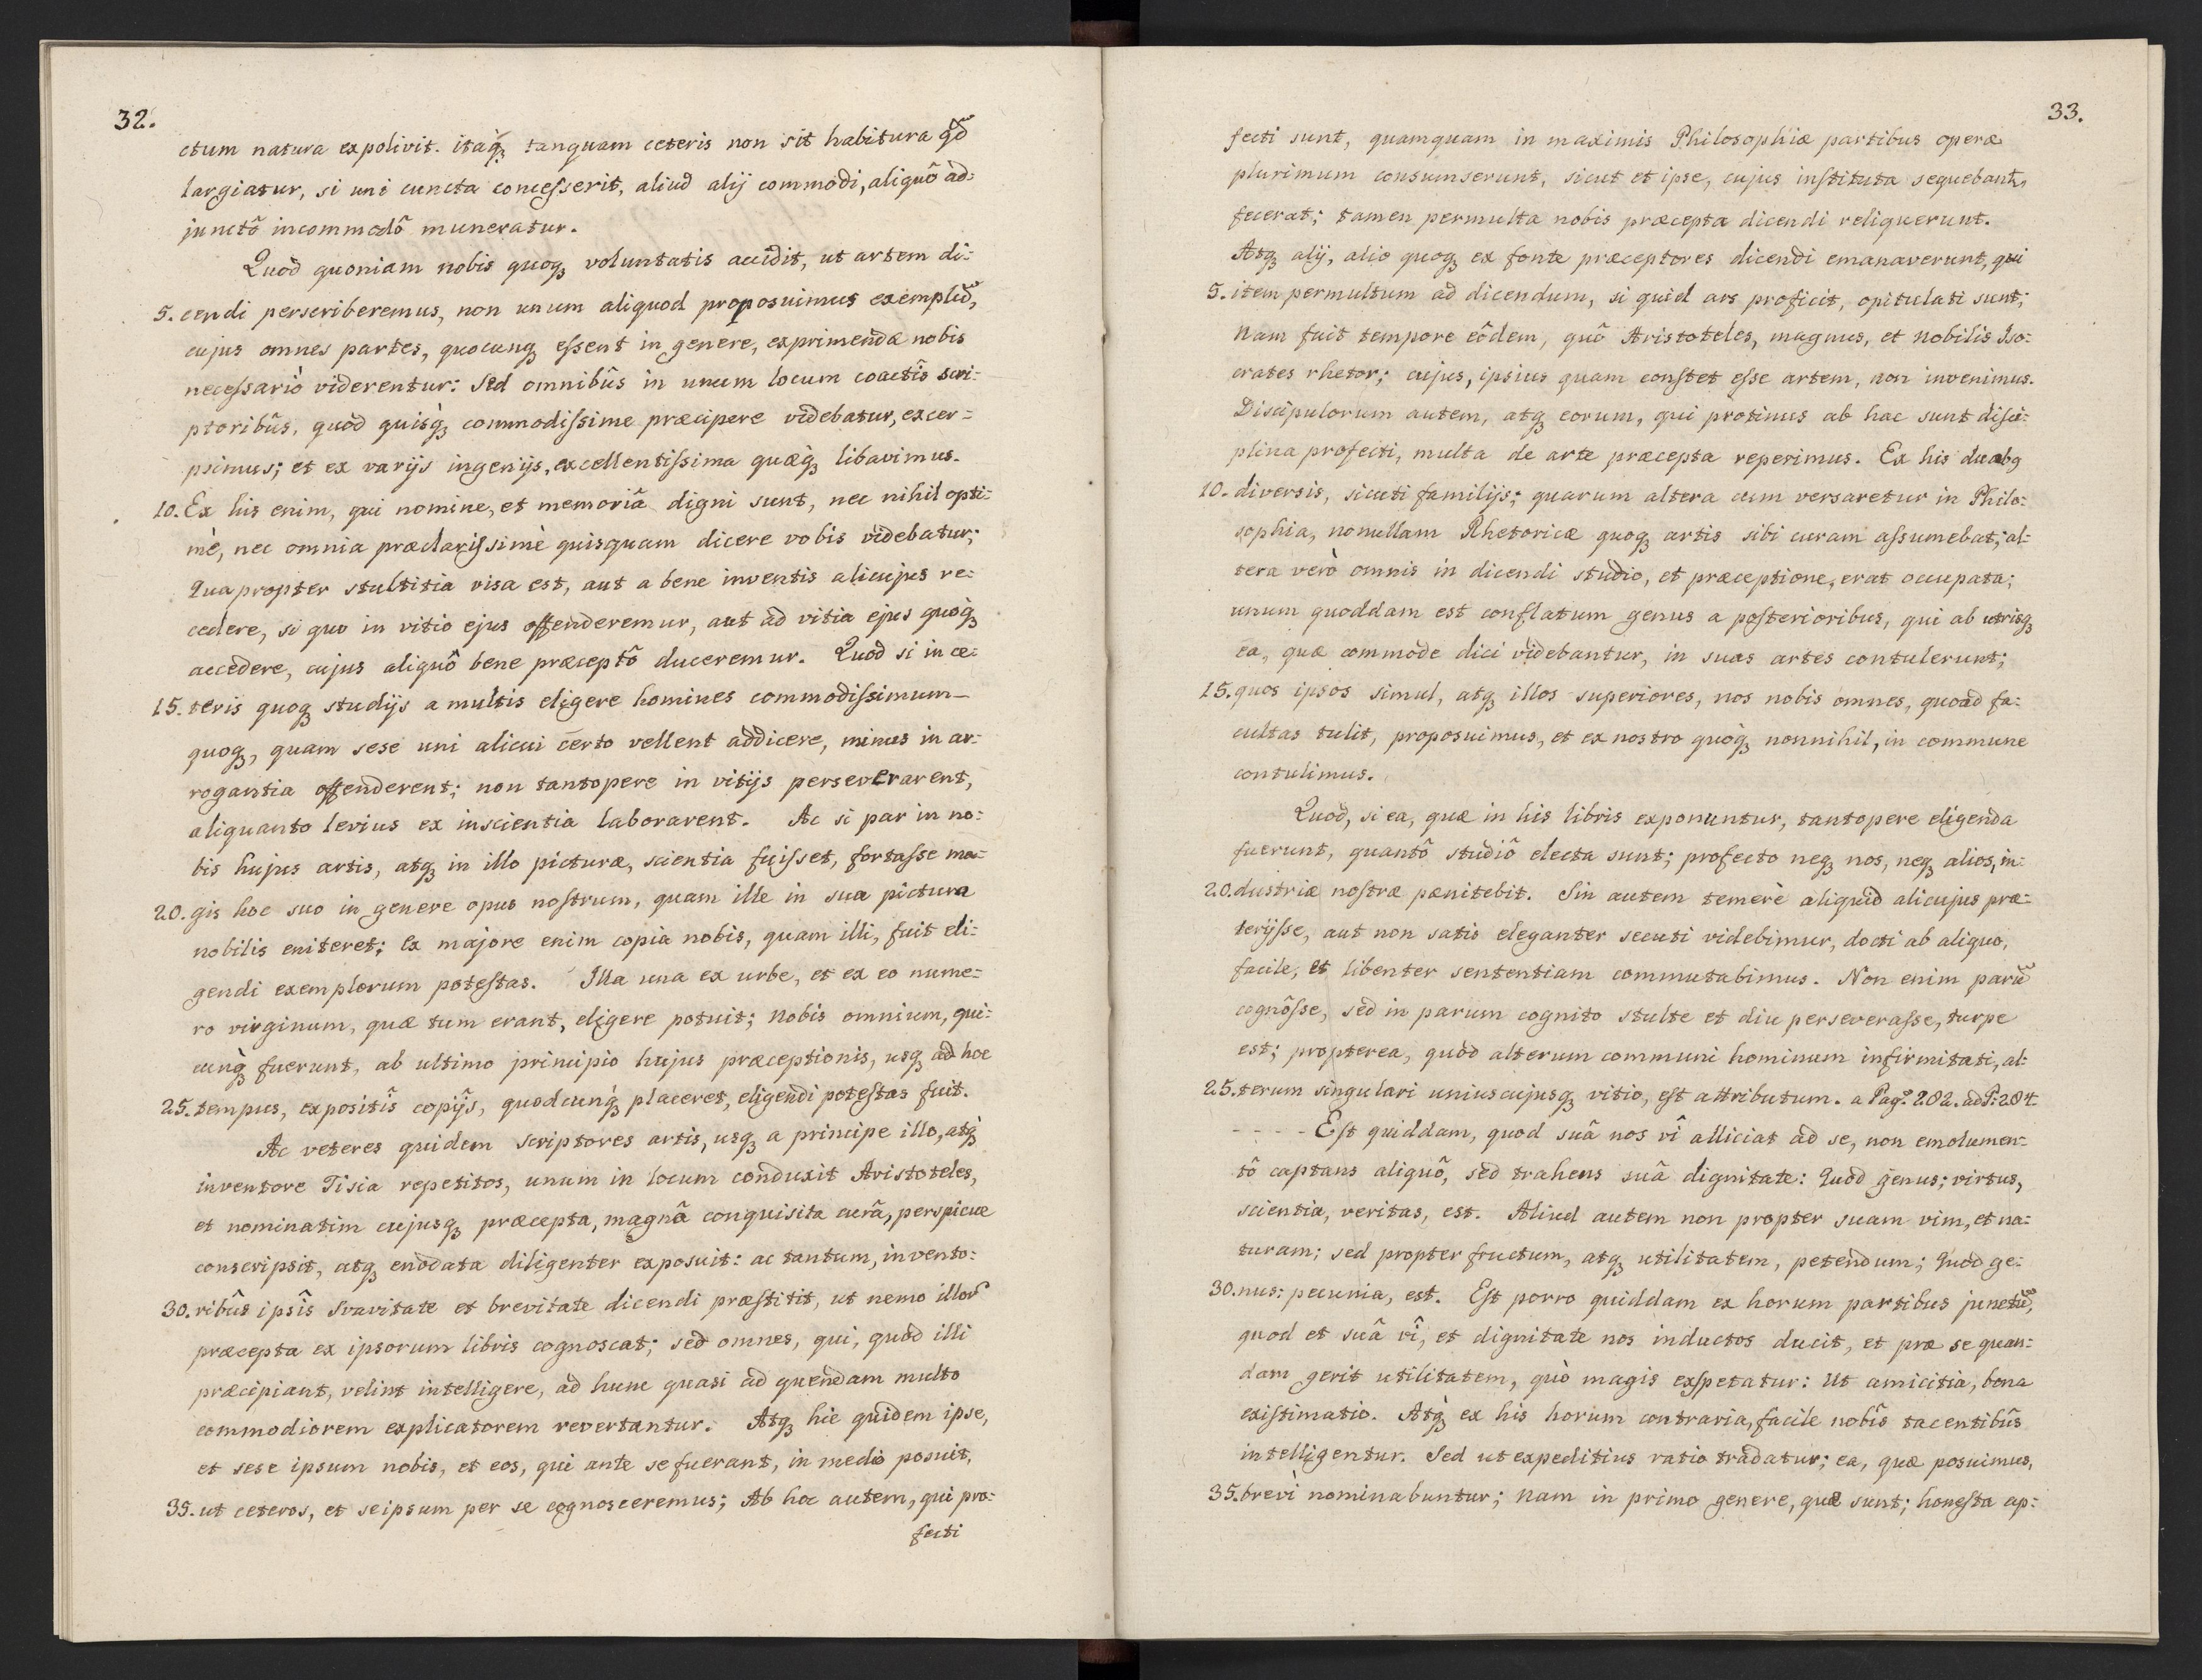 32.
ctum natura expolivit. itaq̀ꝫ tanquam ceteris non sit habitura qd̃
largiatur, si uni cuncta conceſserit, aliud alij commodi, aliquô ad=
junctô incommodô muneratur.
Quòd quoniam nobis quoqꝫ voluntatis accidit, ut artem di=
5. cendi perscriberemus, non unum aliquod proposuimus exemplũ,
cujus omnes partes, quocunqꝫ eſsent in genere, exprimendæ nobis
neceſsariò viderentur: Sed omnibûs in unum locum coactîs scri=
ptoribûs, quòd quisq̀ꝫ commodiſsime præcipere videbatur, excer=
psimus; et ex varijs ingenijs, excellentiſsima quæq̀ꝫ libavimus.
10. Ex his enim, qui nomine, et memoriâ digni sunt, nec nihil opti=
mè, nec omnia præclariſsimè quisquam dicere vobis videbatur;
Quapropter stultitia visa est, aut a bene inventis alicujus re=
cedere, si quo in vitio ejus offenderemur, aut ad vitia ejus quoq̀ꝫ
accedere, cujus aliquô bene præceptô duceremur. Quod si in ce=
15. teris quoqꝫ studijs a multis eligere homines commodiſsimum
quoqꝫ, quam sese uni alicui certo vellent addicere, minus in ar=
rogantia offenderent; non tantopere in vitijs perseverarent,
aliquanto levius ex inscientia laborarent. Ac si par in no=
bis hujus artis, atqꝫ in illo picturæ, scientia fuiſset, fortaſse ma=
20. gis hoc suo in genere opus noſtrum, quam ille in sua pictura
nobilis eniteret; Ex majore enim copia nobis, quam illi, fuit eli=
gendi exemplorum poteſtas. Illa una ex urbe, et ex eo nume=
ro virginum, quæ tum erant, eligere potuit; Nobis omnium, qui=
cunq̀ꝫ fuerunt, ab ultimo principio hujus præceptionis, usqꝫ ad hoc
25. tempus, expositîs copijs, quodcunq̀ꝫ placeret, eligendi poteſtas fuit.
Ac veteres quidem scriptores artis, usqꝫ a principe illo, atq̀ꝫ
inventore Tisia repetitos, unum in locum conduxit Aristoteles,
et nominatim cujusqꝫ præcepta, magnâ conquisita curâ, perspicue
conscripsit, atqꝫ enodata diligenter exposuit: ac tantum, invento=
30. ribûs ipsîs svavitate et brevitate dicendi præſtitit, ut nemo illoꝝ
præcepta ex ipsorum libris cognoscat; sed omnes, qui, quòd illi
præcipiant, velint intelligere, ad hunc quasi ad quendam multo
commodiorem explicatorem revertantur. Atqꝫ hic quidem ipse,
et sese ipsum nobis, et eos, qui ante se fuerant, in medio posuit,
35. ut ceteros, et seipsum per se cognosceremus; Ab hoc autem, qui pro=
fecti
33.
fecti sunt, quamquam in maximis Philosophiæ partibus operæ
plurimum consumserunt, sicut et ipse, cujus inſtituta sequebantꝛ,
fecerat; tamen permulta nobis præcepta dicendi reliquerunt.
Atqꝫ alij, alio quoqꝫ ex fonte præceptores dicendi emanaverunt, qui
5. item permultum ad dicendum, si quid ars proficit, opitulati sunt;
Nam fuit tempore eôdem, quô Aristoteles, magnus, et nobilis Iso=
crates rhetor; cujus, ipsius quam conſtet eſse artem, non invenimus.
Discipulorum autem, atqꝫ eorum, qui protinus ab hac sunt disci=
plina profecti, multa de arte præcepta reperimus. Ex his duabꝯ
10. diversis, sicuti familijs; quarum altera cum versaretur in Philo=
sophia, nonullam Rhetoricæ quoqꝫ artis sibi curam aſsumebat; al=
tera verò omnis in dicendi studio, et præceptione, erat occupata;
unum quoddam est conflatum genus a poſterioribus, qui ab utrisqꝫ
ea, quæ commode dici videbantur, in suas artes contulerunt;
15. quos ipsos simul, atqꝫ illos superiores, nos nobis omnes, quoad fa=
cultas tulit, proposuimus, et ex nostro quoq̀ꝫ nonnihil, in commune
contulimus.
Quòd, si ea, quæ in his libris exponuntur, tantopere eligenda
fuerunt, quantô studiô electa sunt; profecto neqꝫ nos, neqꝫ alios, in=
20. dustriæ noſtræ pænitebit. Sin autem temerè aliquid alicujus præ=
terijſse, aut non satis eleganter secuti videbimur, docti ab aliquo,
facile, et libenter sententiam commutabimus. Non enim parũ
cognôſse, sed in parum cognito stulte et diu perseveraſse, turpe
est; propterea, quòd alterum communi hominum infirmitati, al=
25. terum singulari uniuscujusqꝫ vitio, eſt attributum. a Pag: 202. ad P: 204.
- - - - Eſt quiddam, quod suâ nos vî alliciat ad se, non emolumen=
tô captans aliquô, sed trahens suâ dignitate: Quòd genus; virtus,
scientia, veritas, est. Aliud autem non propter suam vim, et na=
turam; sed propter fructum, atqꝫ utilitatem, petendum; Quòd ge=
30. nus: pecunia, est. Eſt porro quiddam ex horum partibus junctũ,
quod et suâ vî, et dignitate nos inductos ducit, et præ se quan=
dam gerit utilitatem, quò magis exſpetatur: Ut amicitia, bona
exiſtimatio. Atq̀ꝫ ex his horum contraria, facile nobîs tacentibûs
intelligentur. Sed ut expeditius ratio tradatur; ea, quæ posuimus,
35. brevì nominabuntur; Nam in primo genere, quæ sunt; honeſta ap=